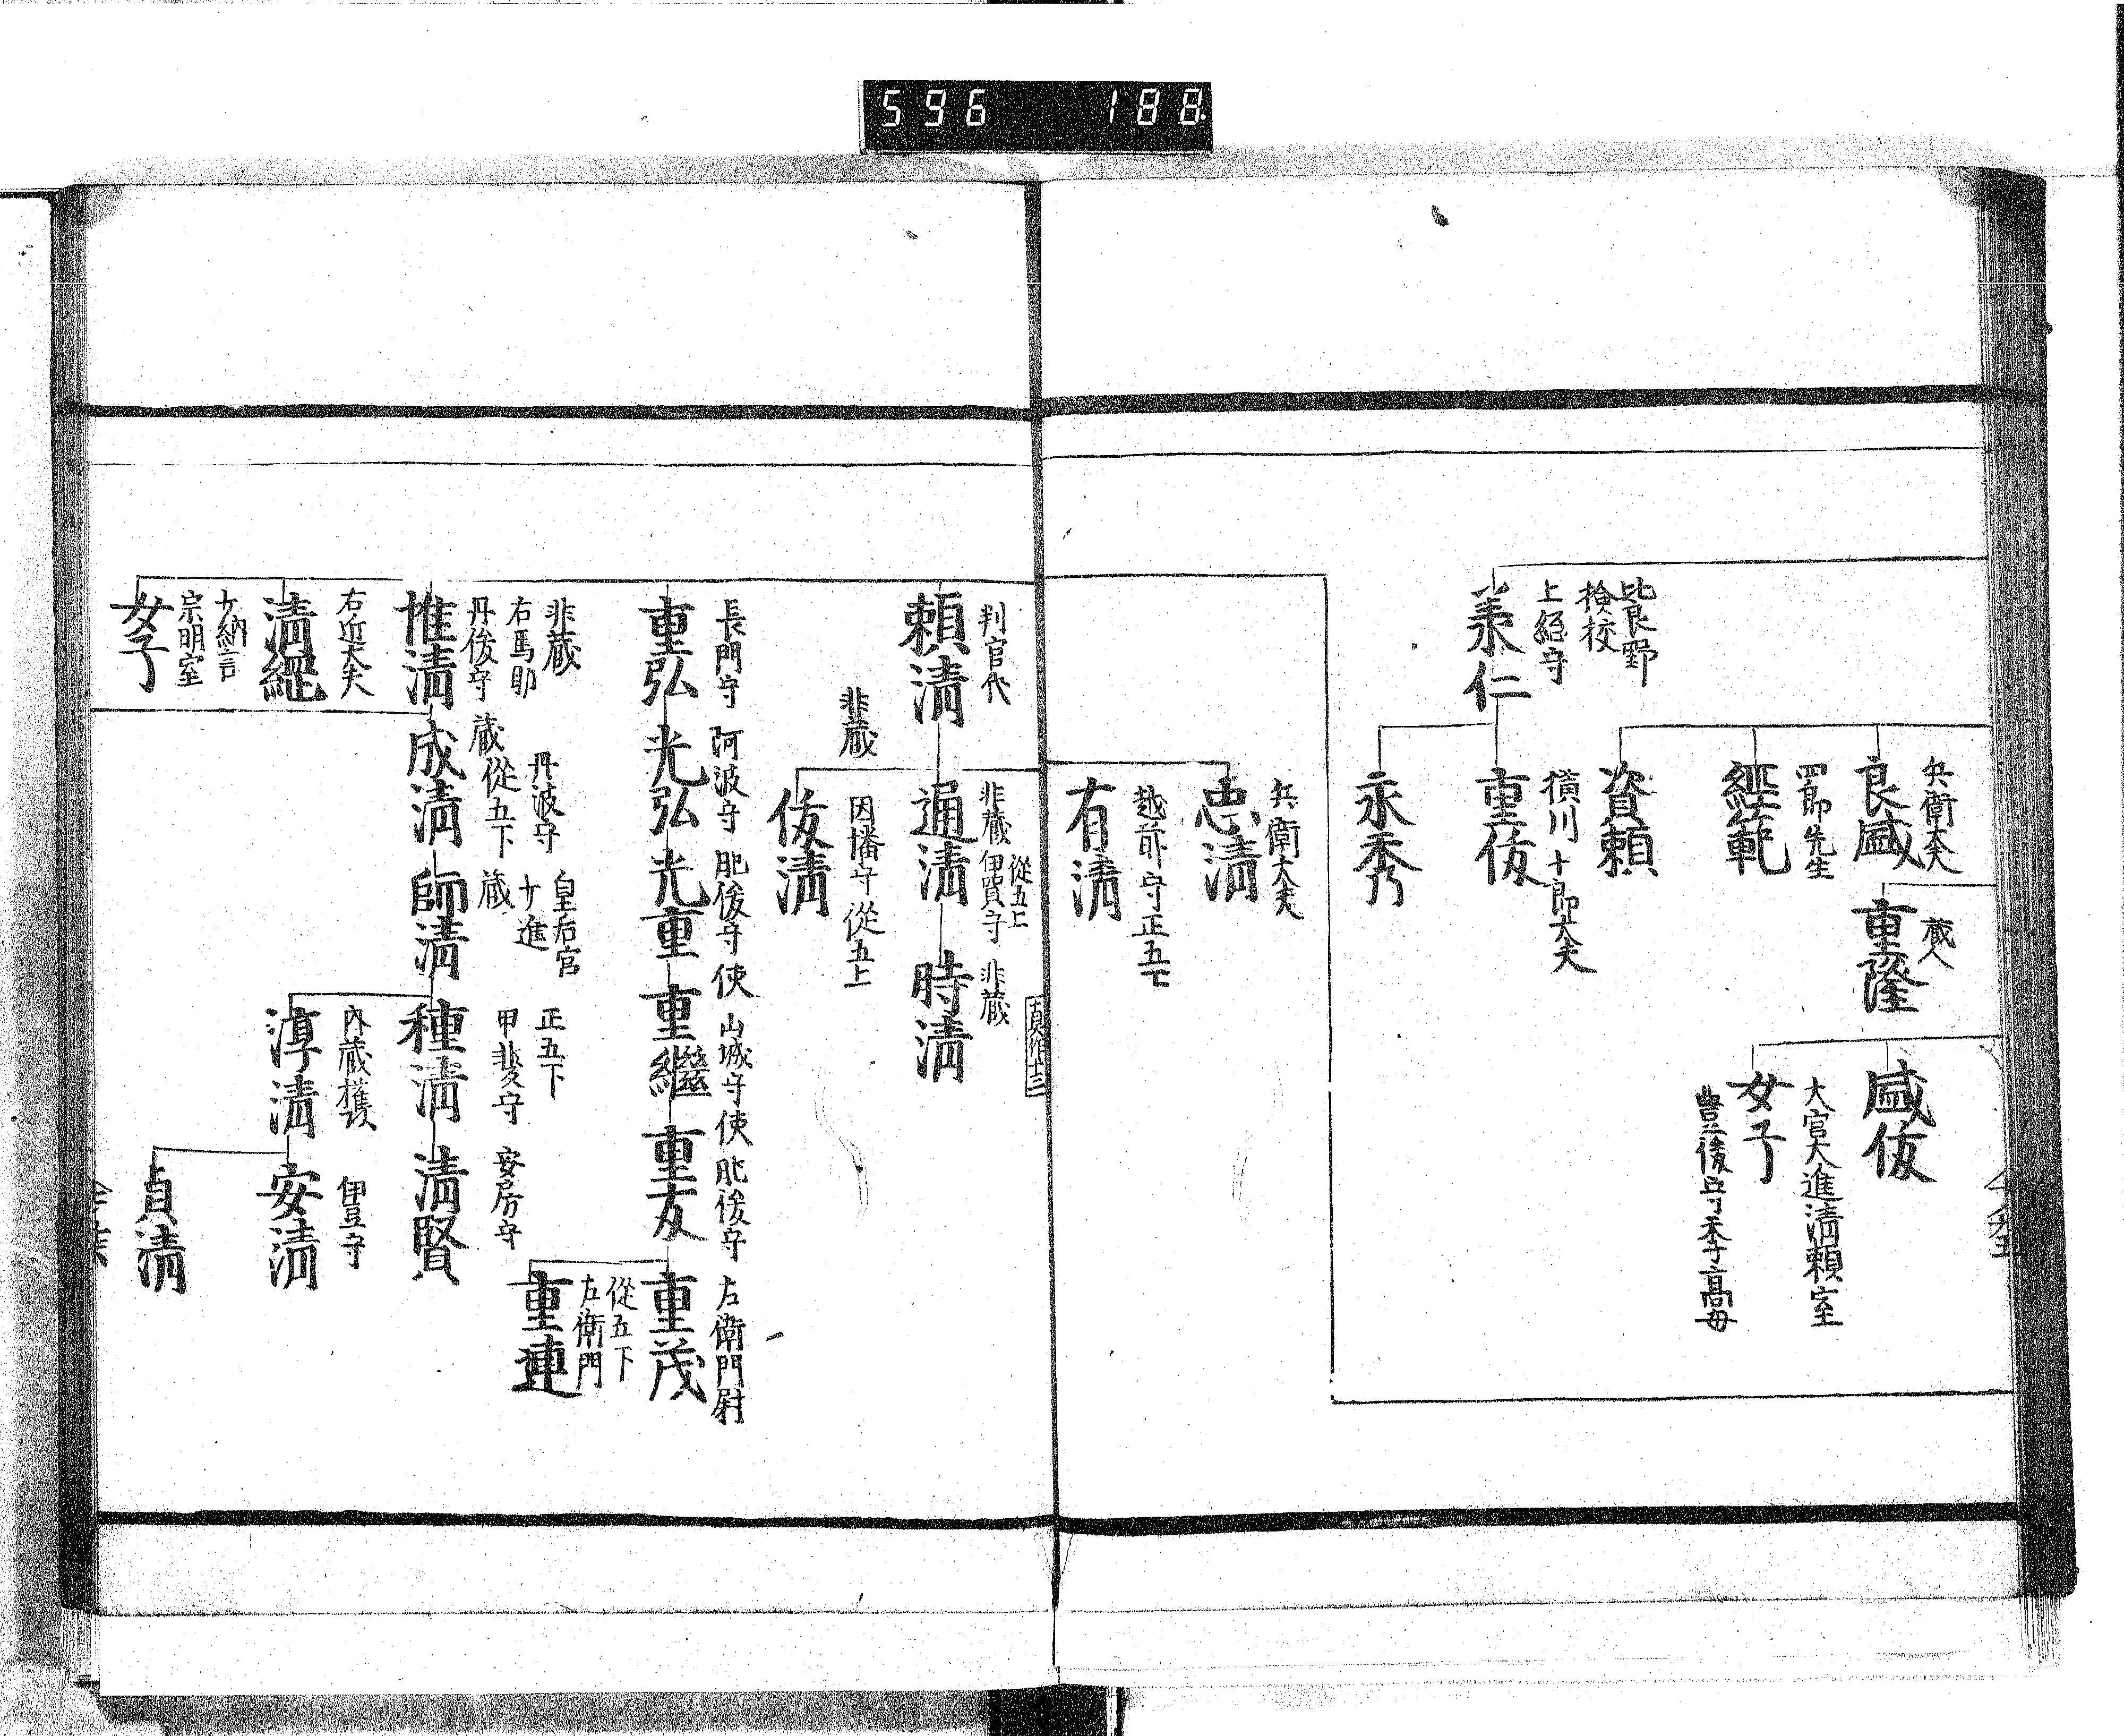 596 188
兵衛大夫
良盛
蔵人
重隆
盛俊
大宮大進清頼室
女子
豊後守季高母
四郎先生
經範
資頼
檢校
上総守
兼仁
横川十郎大夫
重俊
永秀
兵衛大夫
忠清
越前守正五下
有清
判官代
頼清
非蔵 伊賀守
從五上
通清
非蔵
時清
非蔵
因幡守從五上
俊清
長門守
重弘
阿波守
光弘
肥後守使
光重
山城守使
重繼
肥後守
重友
左衛門尉
重茂
從五下
左衛門
重連
非蔵
右馬助
丹後守
惟清
丹波守
蔵從五下
成清
皇后宮
少進
蔵
師清
正五下
甲斐守
種清
安房守
清賢
内蔵權頭
淳清
伊豆守
安清
貞清
右近大夫
清經
少納言
宗明室
女子